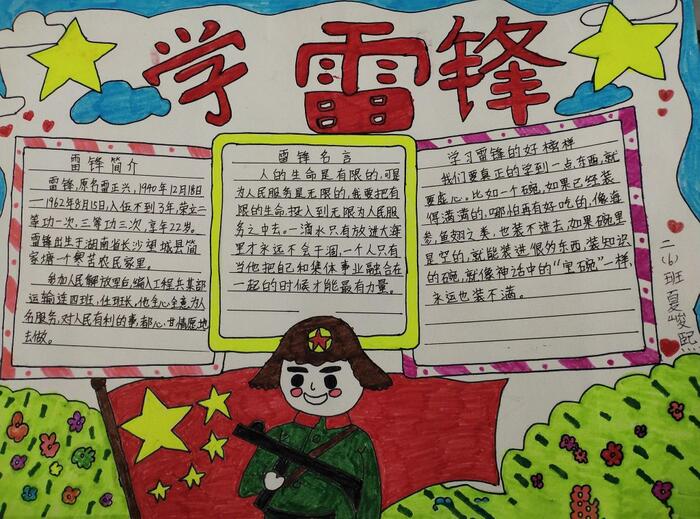 学雷锋
雷锋简介
雷锋,原名雷正兴,1940年12月18日
—1962年8月15日,入伍不到3年,荣立二
等功一次,三等功三次,享年22岁。
雷锋出生于湖南省长沙望城县简
家塘一个贫苦农民家里。
参加人民解放军,编入工程兵某部
运输连四班,任班长,他全心全意为人
名服务,对人民有利的事,都心甘情愿地
去做。
雷锋名言
人的生命是有限的,可是
为人民服务是无限的,我要把有
限的生命投入到无限为人民服
务之中去。一滴水只有放进大海
里才永远不会干涸,一个人只有
当他把自己和集体事业融合在
一起的时候才能最有力量。
学习雷锋的好榜样
我们要真正的学到一点东西,就
要虚心。比如一个碗,如果已经装
得满满的,哪怕再有好吃的,像海
参,鱼翅之类,也装不进去,如果碗里
是空的,就能装进很多东西,装知识
的碗,就像神话中的“宝碗”一样,
永远也装不满。
二(6)班夏峻熙